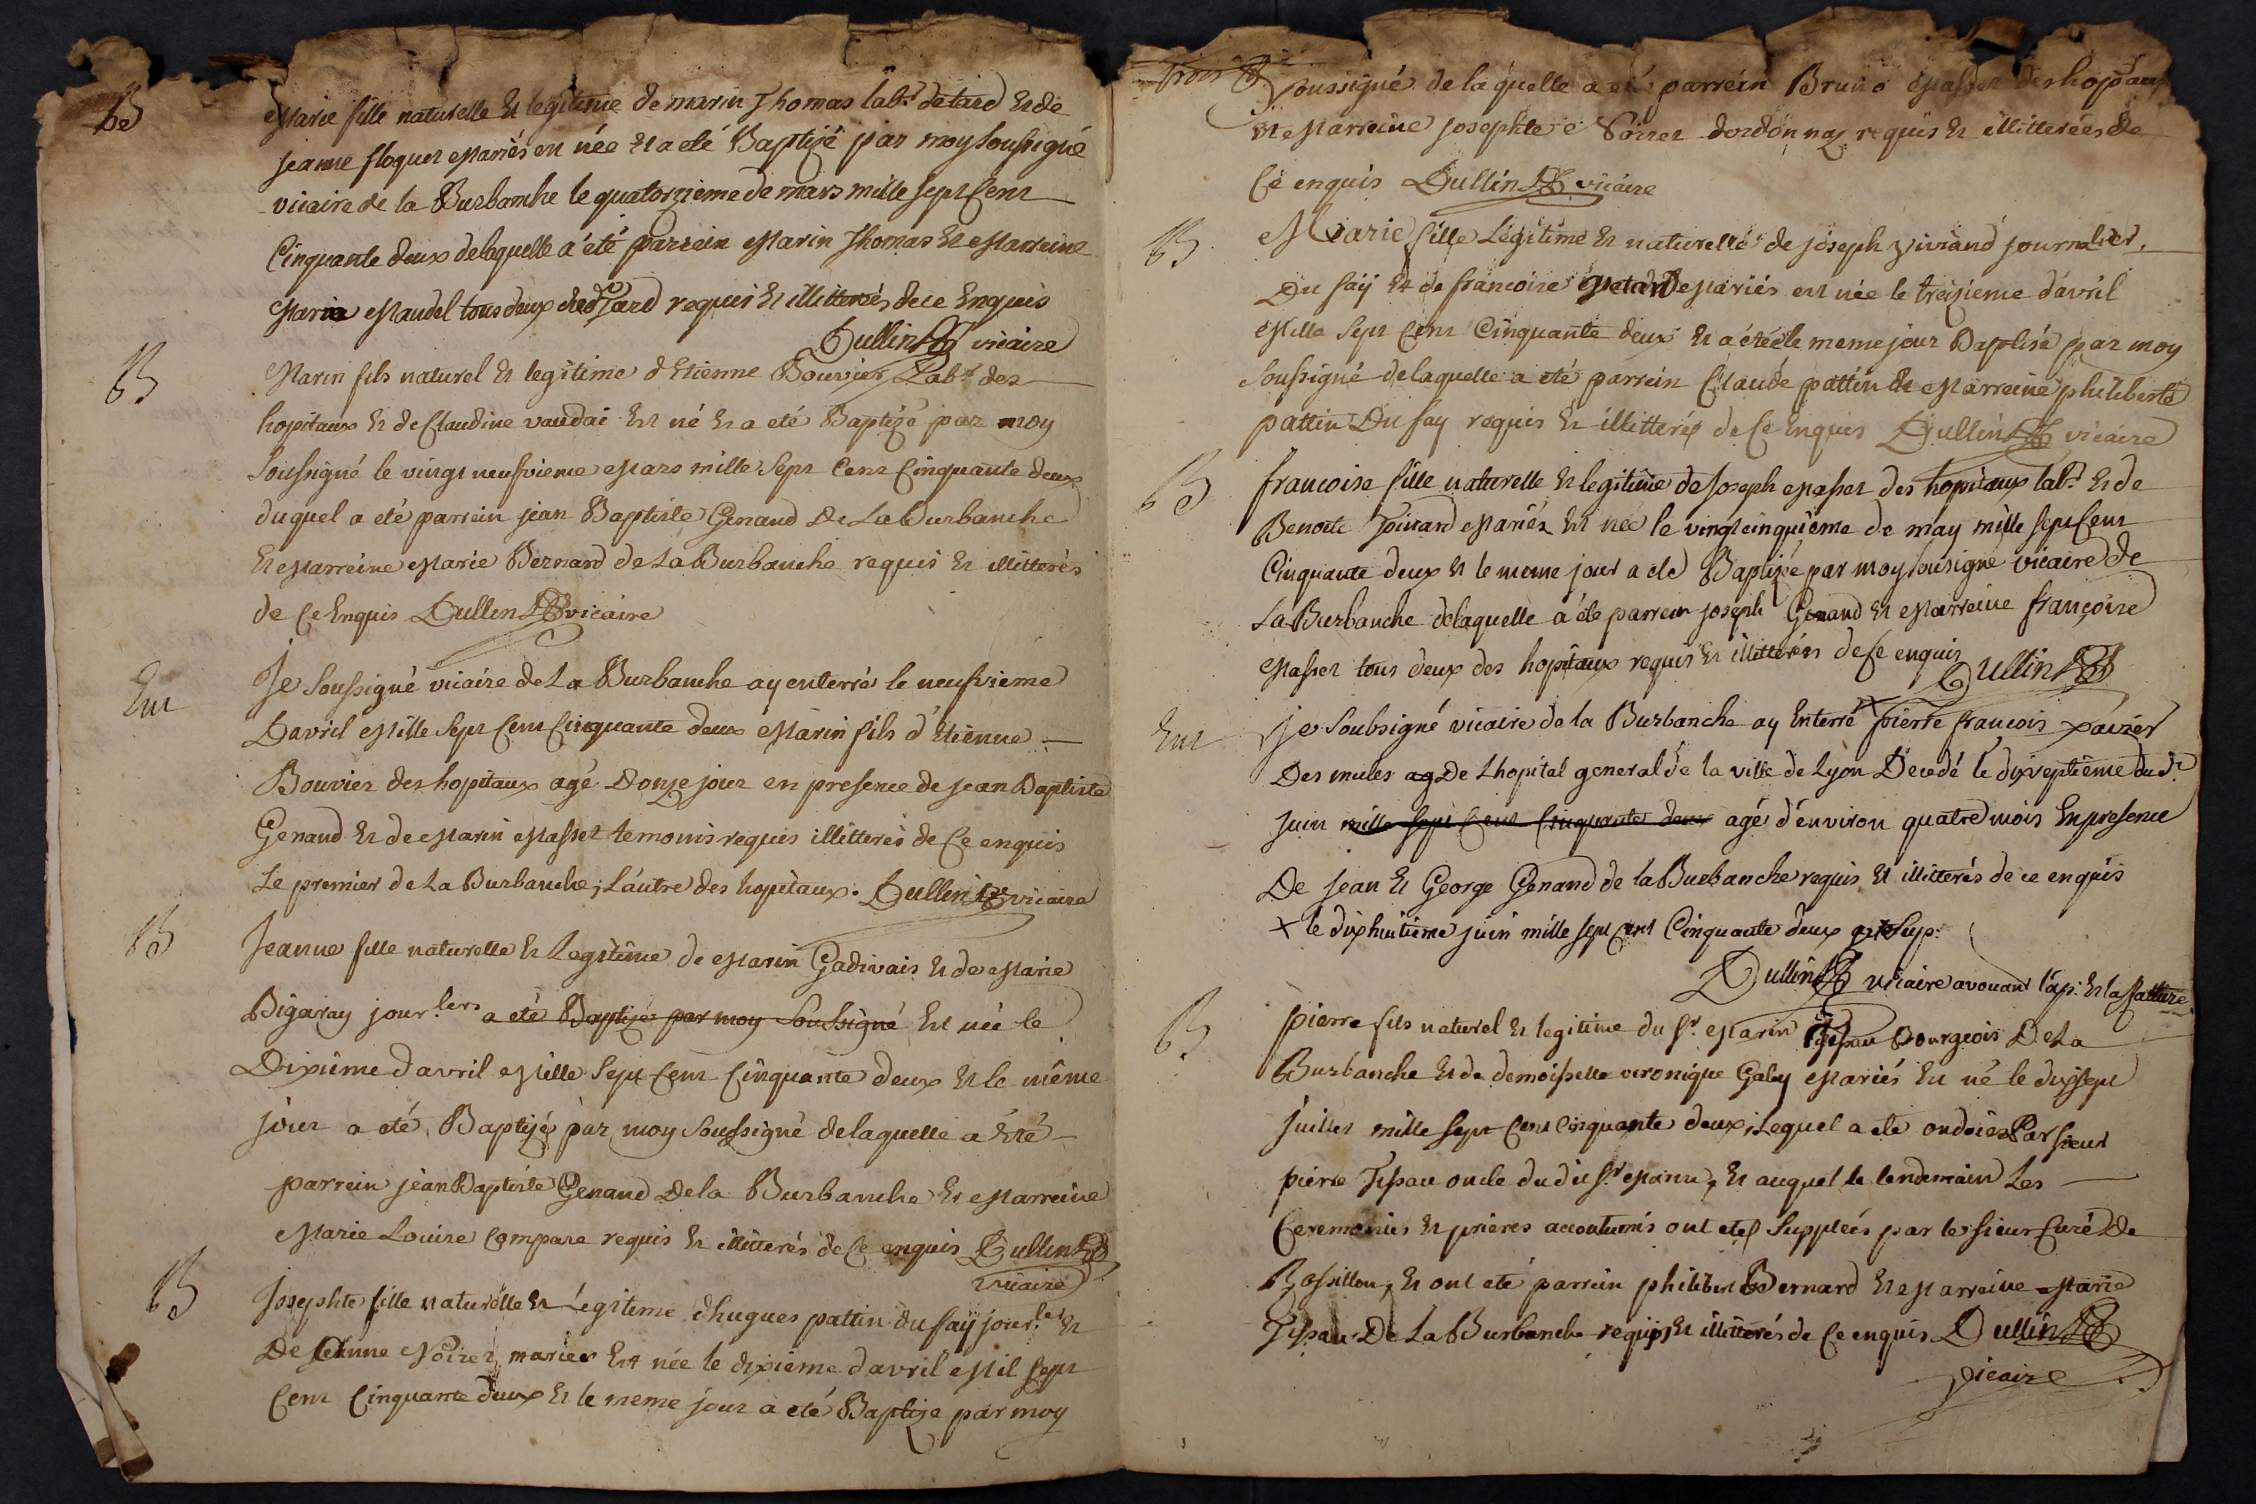 B
Marie fille naturelle et legitime de marin Thomas lab.r de tard et de
jeanne floquet Mariés est née et a eté Baptizé par moy soussigné
vicaire de la Burbanche le quatorzieme de mars mille sept Cent
Cinquante deux delaquelle a été parrein Marin Thomas et Marreine
Marie Maudel tous deux de Tard requis et illitterés dece Enquis
Dullin vicaire
B
Marin fils naturel et legitime d'Etienne Bouvier Lab.r des
hopitaux et de Claudine vaudai est né et a eté Baptizé par moy
Soussigné le vingt neufvieme Mars mille Sept Cent Cinquante deux
duquel a eté parrein jean Baptiste Genaud De La Burbanche
Et Marreine Marie Bernard de La Burbanche requis et illitterés
de Ce Enquis Dullin vicaire
Ent
Je Soussigné vicaire de La Burbanche ay enterré le neufvieme
D'avril Mille Sept Cent Cinquante deux Marin fils d'Etienne
Bouvier des hopitaux agé Donze jour en presence de jean Baptiste
Genaud et de Marin Masset temoins requis illitterés de Ce enquis
Le premier de La Burbanche, L'autre des hopitaux. Dullin vicaire
B
Jeanne fille naturelle et Legitime de Marin Gadivais et de Marie
Bigaray jour.lers a eté Baptizé par moy Soussigné Est née le
Dixieme d'avril Mille Sept Cent Cinquante deux et le même
jour a eté Baptizé par moy Soussigné delaquelle a Eté
parrein jean Baptiste Genaud De la Burbanche et Marreine
Marie Louise Compare requis et illitterés de Ce enquis Dullin
vicaire
B
Josephte fille naturelle et Légitime d'hugues pattin du faÿ jour.ler et
De Jeanne Poiret mariés Est née le dixieme d'avril Mil Sept
Cent Cinquante deux et le meme jour a eté Baptize par moy
Trois
Soussigné de laquelle a eté parrein Bruno Masset des hopitaux
et Marreine josephte Poiret d'ordonnaz requis et illitterées de
Ce enquis Dullin vicaire
B
Marie fille Légitime et naturelle de joseph Vivand journalier
Du faÿ et de francoise Mariés est née le treizieme d'avril
Mille Sept Cent Cinquante deux et a été le meme jour Baptisé par moy
Soussigné delaquelle a eté parrein Claude pattin et Marreine philiberte
pattin Du fay requis et illitterés de Ce Enquis Dullin vicaire
B
francoise fille naturelle et legitime de Joseph Masset des hopitaux lab.r et de
Benoite Mariés est née le vingt cinquieme de may mille sept Cent
Cinquante deux et le meme jour a eté Baptizée par moy sousigné vicaire de
La Burbanche delaquelle a été parrein joseph Genaud et Marreine françoise
Masset tous deux des hopitaux requis et illitterés de Ce enquis Dullin
Ent
je Soubsigné vicaire de la Burbanche ay Enterré × pierre francois
Des mules ag De L'hopital general de la ville de Lyon Decedé le dixseptieme du d.t
juin mille sept Cent Cinquante deux agé d'environ quatre mois En presence
De jean et George Genand de la Burbanche requis et illitterés de ce enquis
× le dix huitieme juin mille sept Cent Cinquante deux
Dullin vicaire avouant l'ap. et la rature
B
pierre fils naturel et legitime du S.r Marin Tissau Bourgeois De La
Burbanche et de demoisselle veronique Galay Mariés Est né le dixsept
juillet mille sept Cent Cinquante deux, Lequel a eté ondoié Par sieur
piérre Tissau oncle dudit S.r Marin, et auquel le lendemain Les
Ceremonies et prieres accoutumés ont etes Supplées par le sieur Curé De
Rossillon, et ont eté parrein philibert Bernard et Marreine Marie
Tissau De La Burbanche requis, et illitterés de Ce enquis Dullin
vicaire